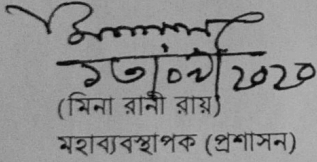 ২০২০
(মিনা রানী রায়)
মহাব্যবস্থাপক (প্রশাসন)